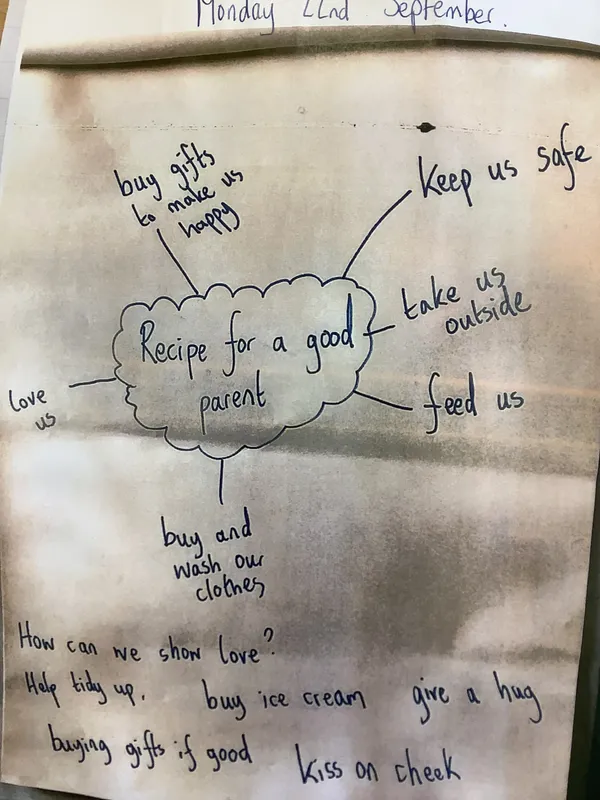 Monday 22nd September.
buy gifts
to make us
happy
Keep us safe
take us
outside
Recipe for a good
parent
feed us
love
us
buy and
wash our
clothes
How can we show love?
Help tidy up.
buy ice cream
give a hug
buying gifts if good
kiss on cheek